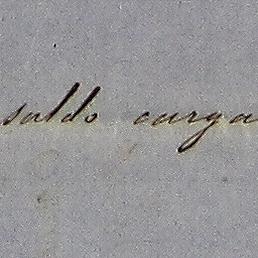 saldo carga